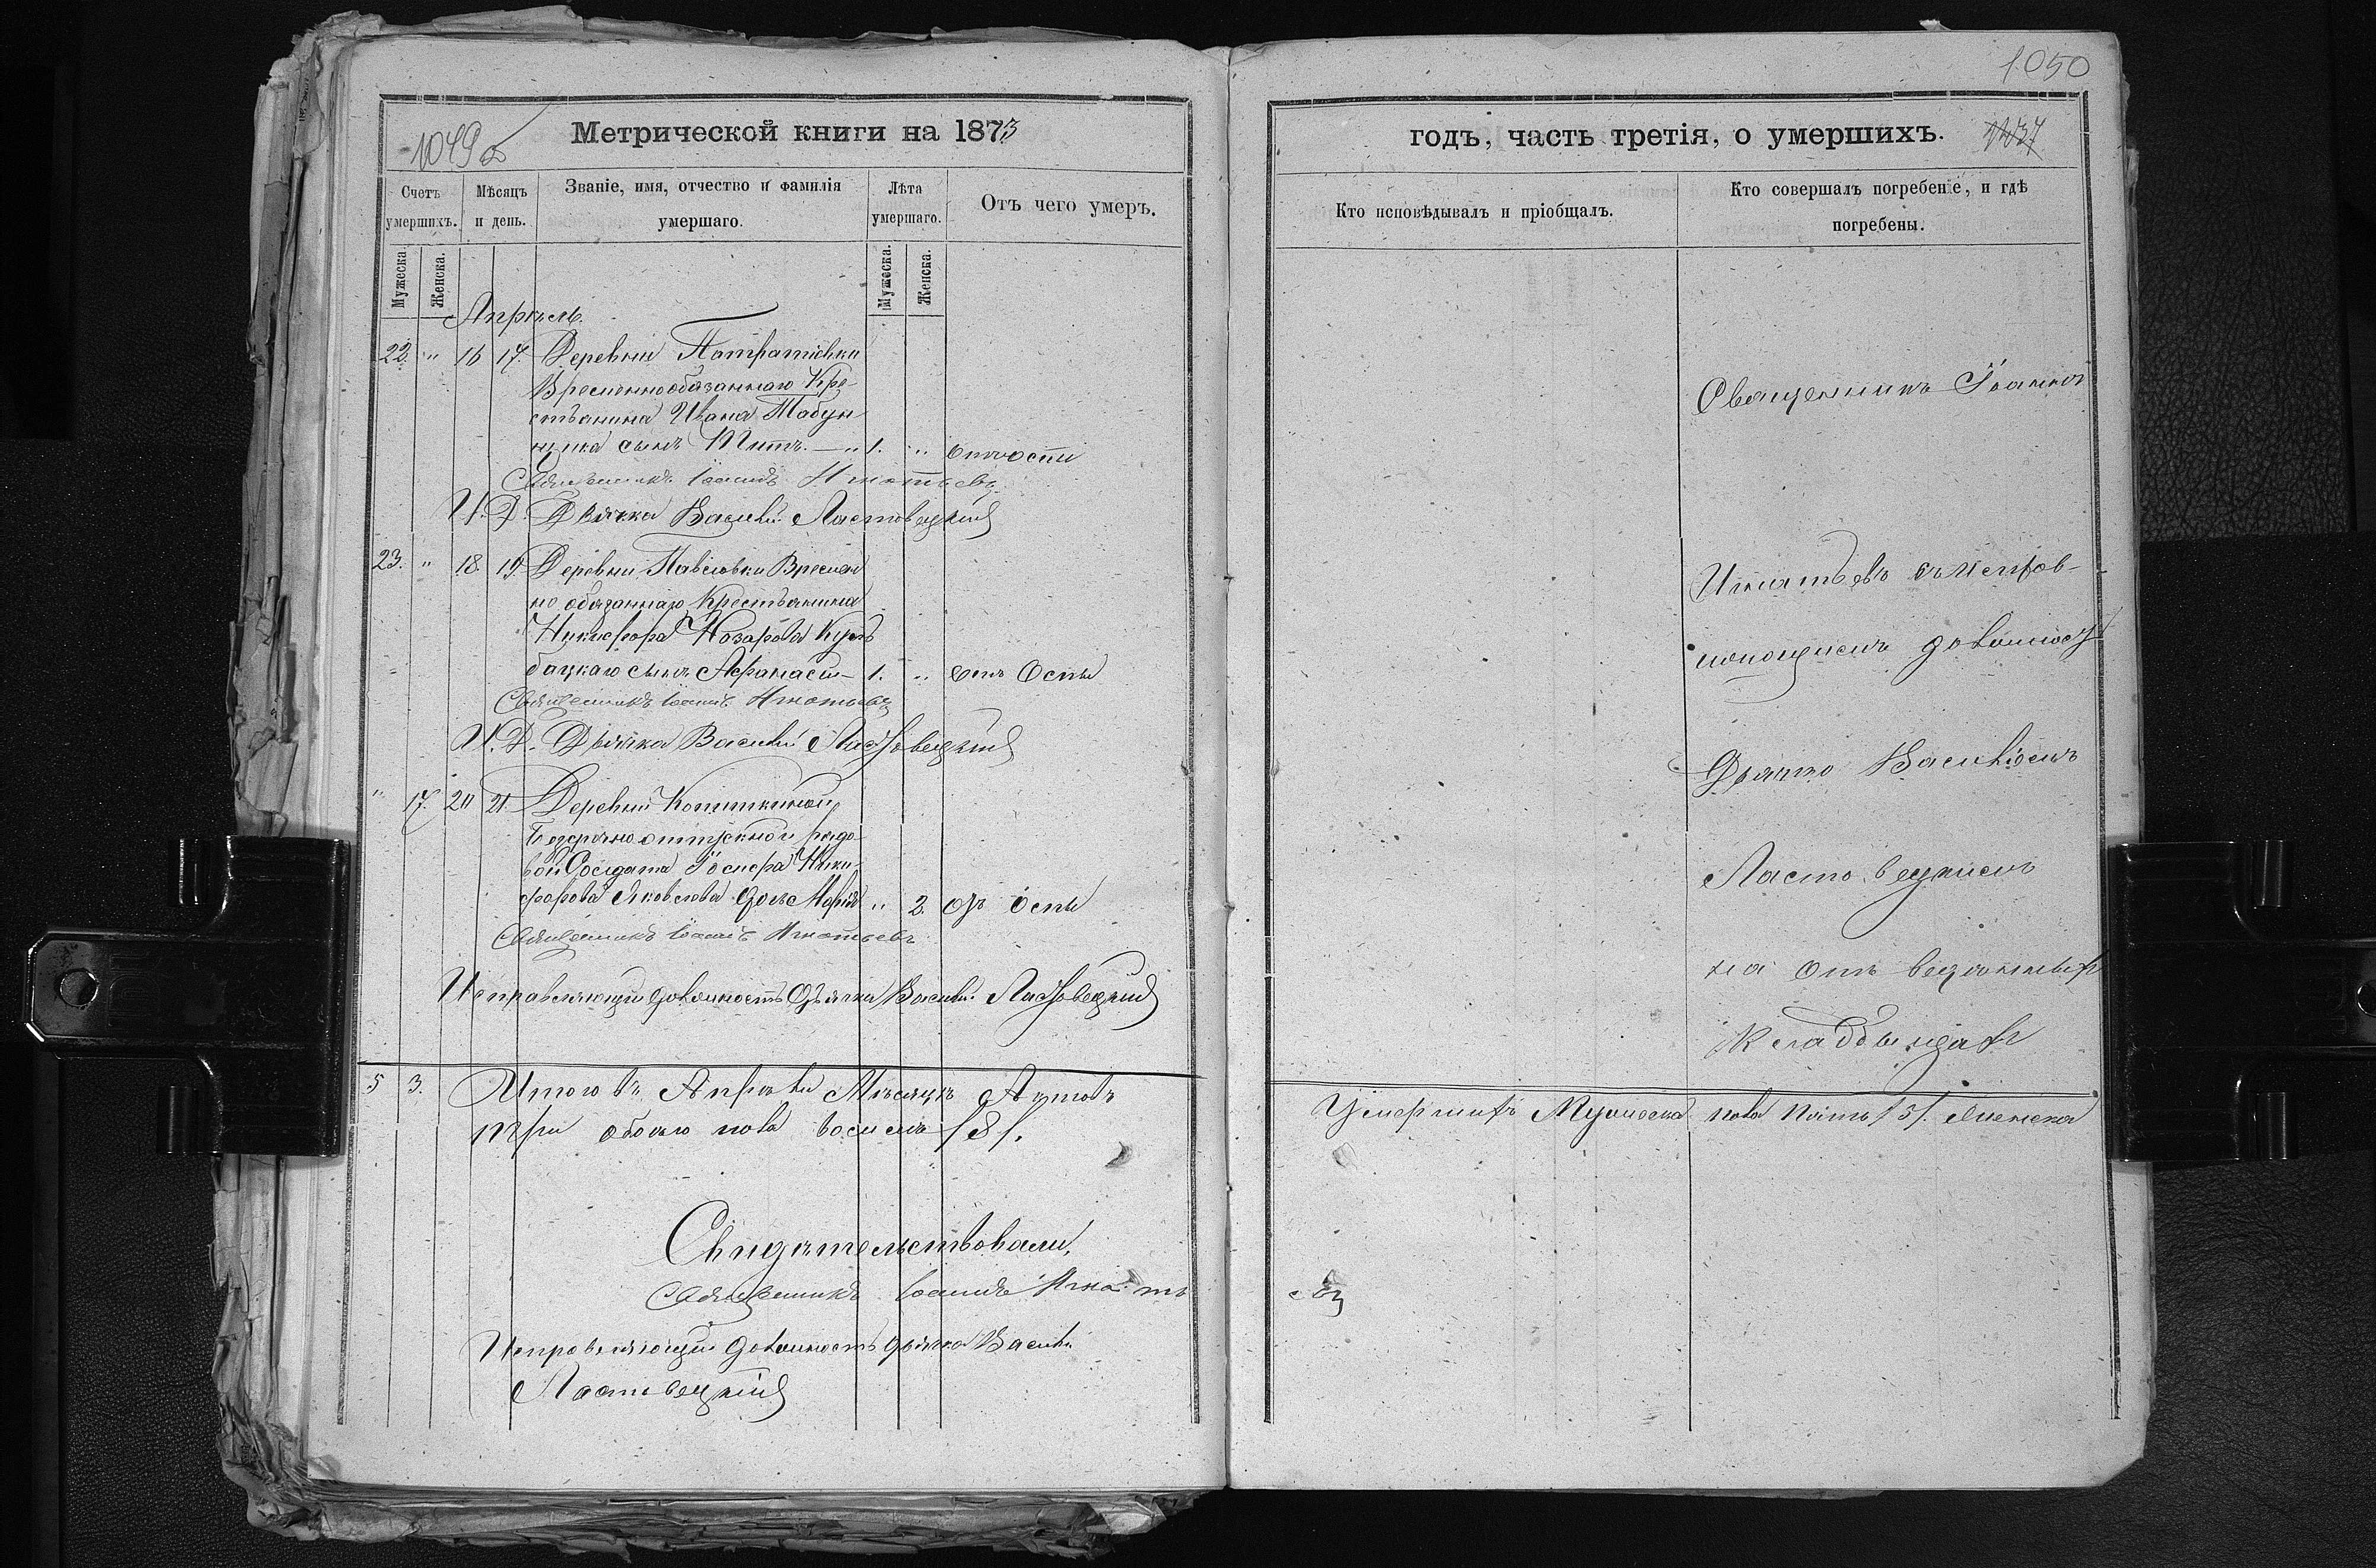 1049
Метрической книги на 1873
Счетъ умершихъ.
Мѣсяцъ и день.
Званіе, имя, отчество и фамилія умершаго.
Лѣта умершаго.
Отъ чего умеръ.
Мужеска.
Женска.
Мужеска.
Женска.
Апрѣль.
22. " 16 17. Деревни
Временнообязаннаго Кре-
стьянина Ивана Табун
щика сынъ Титъ. — 1. " отъ оспы
Священникъ Іоаннъ Игнатьевъ
И. Д. Дьячка Василій Ластовецкій
23. " 18. 19. Деревни Павловки Времен
но обязаннаго Крестьянина
Никифора Назарова
бацкаго сынъ Афанасій — 1. " отъ Оспы
Священникъ Іоаннъ Игнатьевъ
И. Д. Дьячка Василій Ластовецкій
" 17. 20 21. Деревни
Безсрочно отпускнаго рядо-
вой Солдата Іосифа Ники-
форова Яковлева дочь Марія " 2. отъ оспы
Священникъ Іоаннъ Игнатьевъ
Исправляющій должность Дьячка Василій Ластовецкій
5 3. Итого въ Апрѣлѣ Мѣсяцѣ Актовъ
три обоего пола восемь /8/.
Свидѣтельствовали,
Священникъ Іоаннъ Игнать
Исправляющій должность дьячка Василій
Ластовецкій
1050
годъ, часть третія, о умершихъ.
1137
Кто исповѣдывалъ и пріобщалъ.
Кто совершалъ погребеніе, и гдѣ погребены.
Священникъ Іоаннъ
Игнатьевъ съ исправ-
ляющимъ должность
Дьячка Василіемъ
Ластовецкимъ
на отведенныхъ
Кладбищахъ
Умершихъ Мужеска пола пять /5/. Женска
евъ